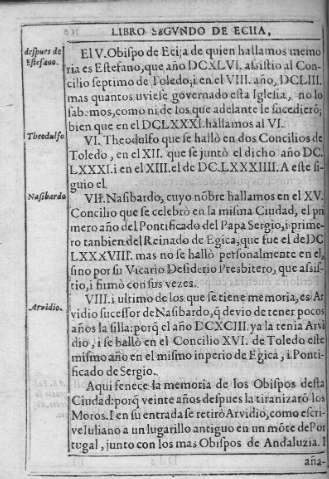 LIBRO SEGVNDO DE ECIIA,
despues de
Estefano.
El V. Obispo de Ecija de quien hallamos memo
ria es Estefano, que año DCXLVI. assistio al Con
cilio septimo de Toledo, i en el VIII. año, DCLIII.
mas quantos uviese governado esta Iglesia, no lo
sabemos, como ni de los que adelante le sucedierõ;
bien que en el DCLXXXI. hallamos al VI.
Theodulfo.
VI. Theodulfo que se hallò en dos Concilios de
Toledo, en el XII. que se juntò el dicho año DC.
LXXXI. i en el XIII. el de DC.LXXXIIII. A este si-
guio el.
Nasibardo
VII. Nasibardo, cuyo nõbre hallamos en el XV.
Concilio que se celebrò en la misma Ciudad, el pri
mero año del Pontificado del Papa Sergio, i prime-
ro tanbien del Reinado de Egica, que fue el de DC
LXXXVIII. mas no se hallò personalmente en el,
sino por su Vicario Desiderio Presbitero, que assis-
tio, i firmò con sus vezes.
Arvidio.
VIII. i ultimo de los que se tiene memoria, es Ar
vidio sucessor de Nasibardo, q̃ devio de tener pocos
años la silla: porq̃ el año DCXCIII. ya la tenia Arvi
dio, i se hallò en el Concilio XVI. de Toledo este
mismo año en el mismo inperio de Egica, i Ponti-
ficado de Sergio.
Aqui fenece la memoria de los Obispos desta
Ciudad: porq̃ veinte años despues la tiranizarõ los
Moros. I en su entrada se retirò Arvidio, como escri-
ve Iuliano a un lugarillo antiguo en un mõte de Por
tugal, junto con los mas Obispos de Andaluzia. I
aña-